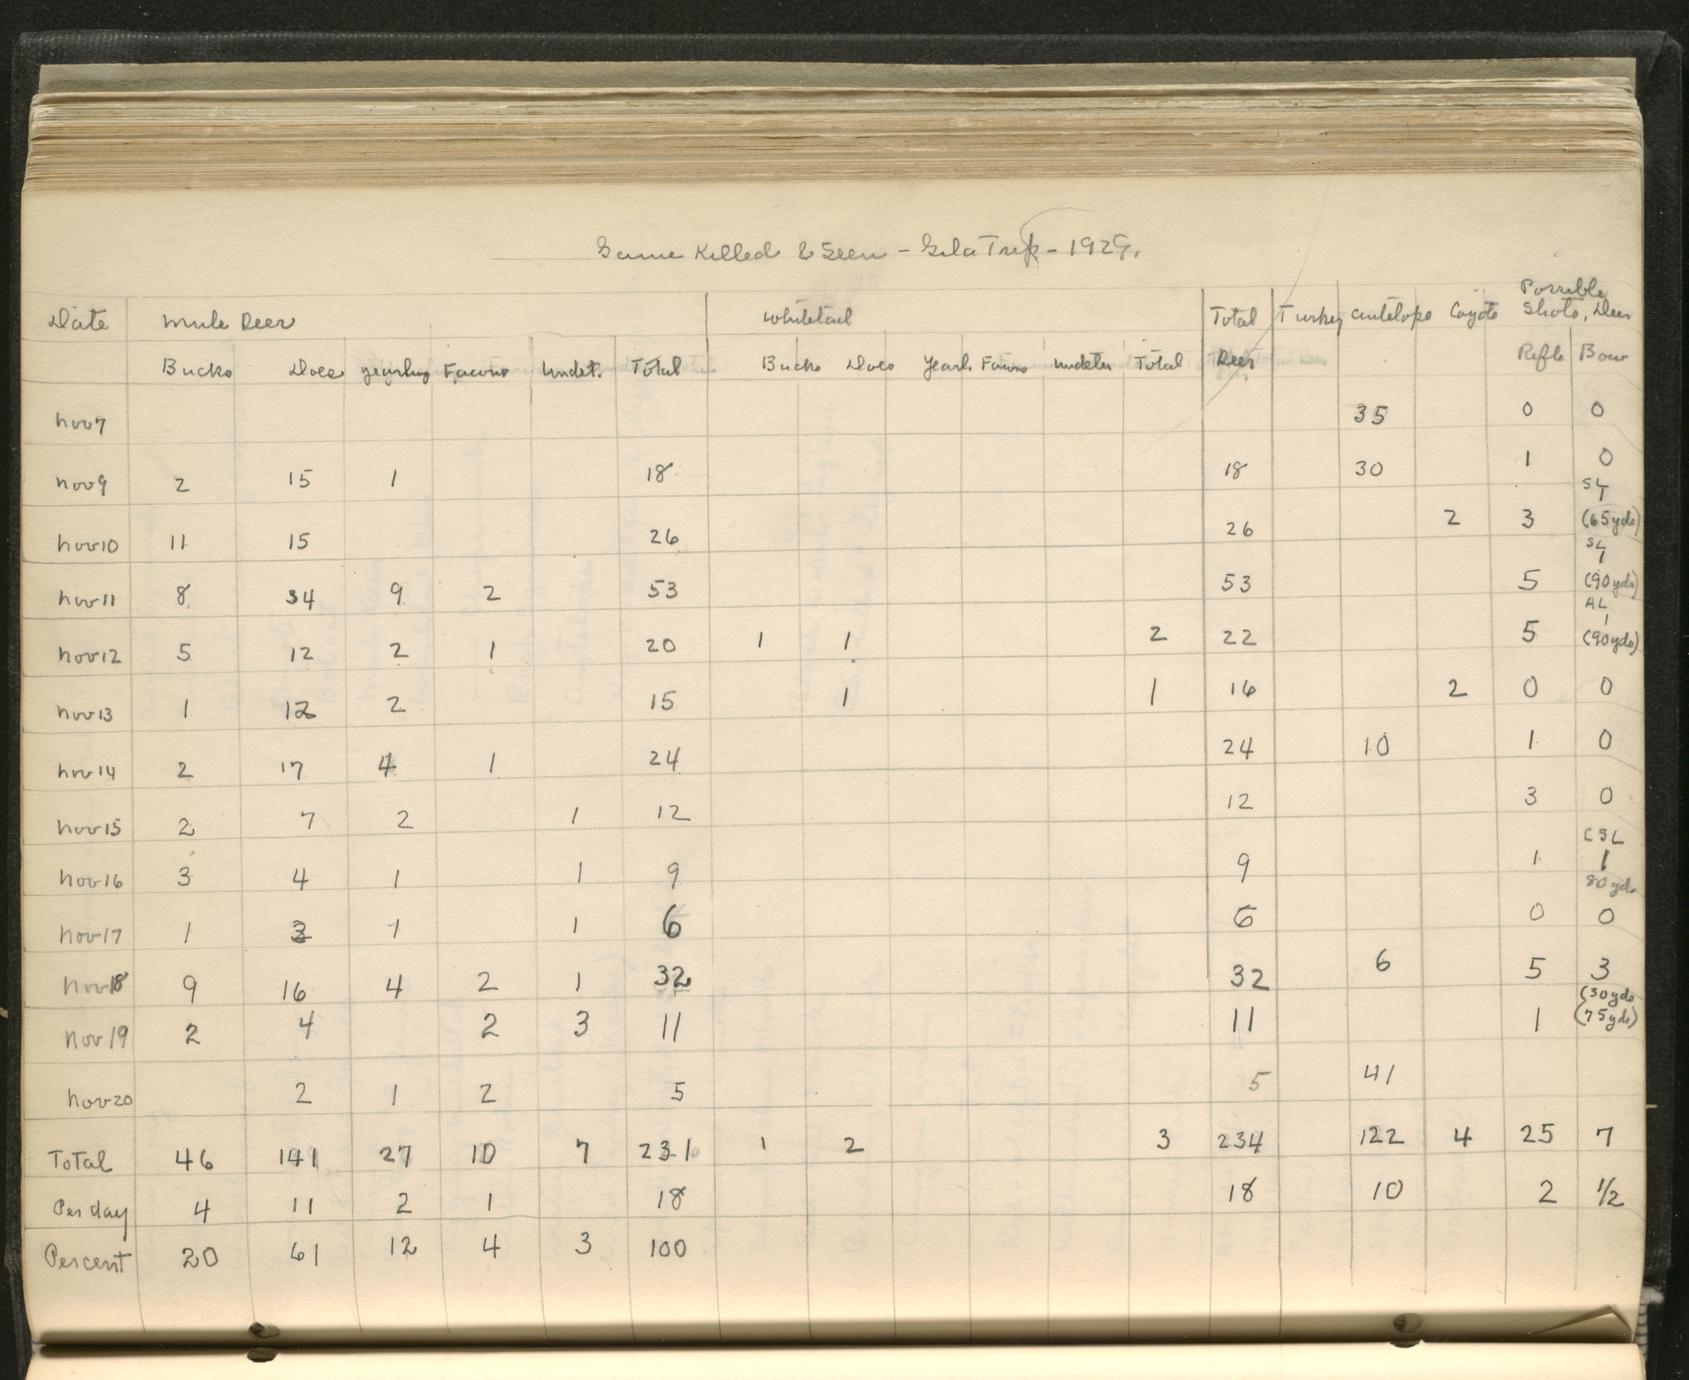 Game Killed & Seen - Gila Trip - 1929.
Possible
Date Mule Deer Whitetail Total Turkey Antelope Coyote Shots, Deer
Bucks Does yearling Fawns Undet. Total Bucks Does Yearl. Fawns Undeter Total Deer Rifle Bow
Nov 7 35 0 0
Nov 9 2 15 1 18 18 30 1 0
SL
1
Nov 10 11 15 26 26 2 3 (65 yds)
SL
1
Nov 11 8 34 9 2 53 53 5 (90 yds)
AL
1
Nov 12 5 12 2 1 20 1 1 2 22 5 (90 yds)
Nov 13 1 12 2 15 1 1 16 2 0 0
Nov 14 2 17 4 1 24 24 10 1 0
Nov 15 2 7 2 1 12 12 3 0
CSL
Nov 16 3 4 1 1 9 9 1 1
80 yds
Nov 17 1 3 1 1 6 6 0 0
Nov 18 9 16 4 2 1 32 32 6 5 3
(30 yds
Nov 19 2 4 2 3 11 11 1 (75 yds)
Nov 20 2 1 2 5 5 41
Total 46 141 27 10 7 231 1 2 3 234 122 4 25 7
Per day 4 11 2 1 18 18 10 2 1/2
Percent 20 61 12 4 3 100